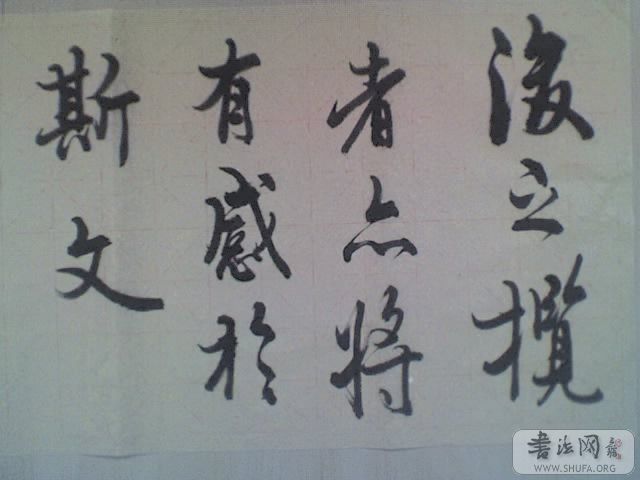 後之攬
者亦將
有感於
斯文
书法网
WWW.SHUFA.ORG